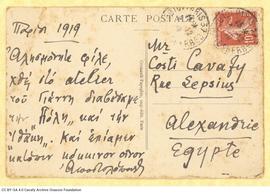 Παρίσι 1919
CARTE POSTALE
Ἀλησμόνητε φίλε,
χθὲς στὸ atelier
τοῦ Γιάννη διαβάσαμε
τὴν "Πόλη" καὶ τὴν
"Ἰθάκη". Καὶ ἐπίαμεν
κόκκινον οἶνον
Mr
Costi Cavafy
Rue Lepsius
Alexandrie
Egypte
CC BY-SA 4.0 Cavafy Archive Onassis Foundation